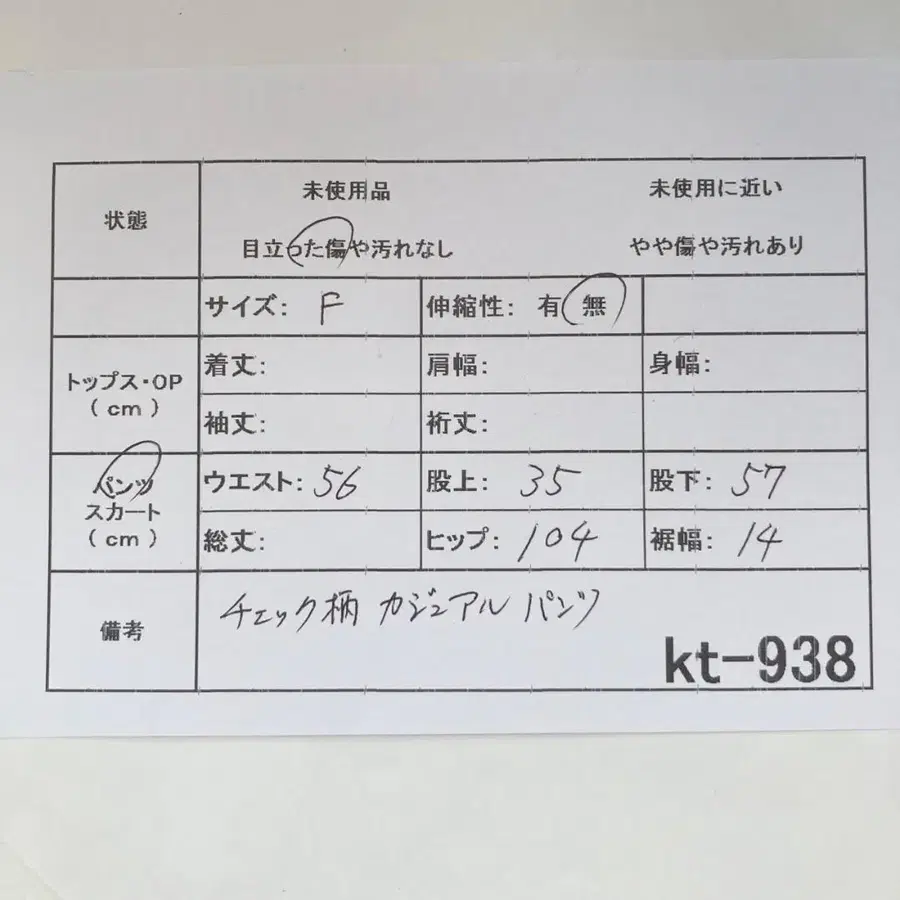 状態
未使用品 未使用に近い
目立った傷や汚れなし やや傷や汚れあり
サイズ: F 伸縮性: 有 無
トップス・OP
(cm)
着丈: 肩幅: 身幅:
袖丈: 裄丈:
パンツ
スカート
(cm)
ウエスト: 56 股上: 35 股下: 57
総丈: ヒップ: 104 裾幅: 14
備考
チェック柄 カジュアル パンツ
kt-938